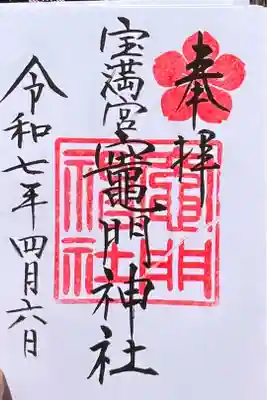 奉拝
宝満宮竈門神社
令和七年四月六日
竈門神社